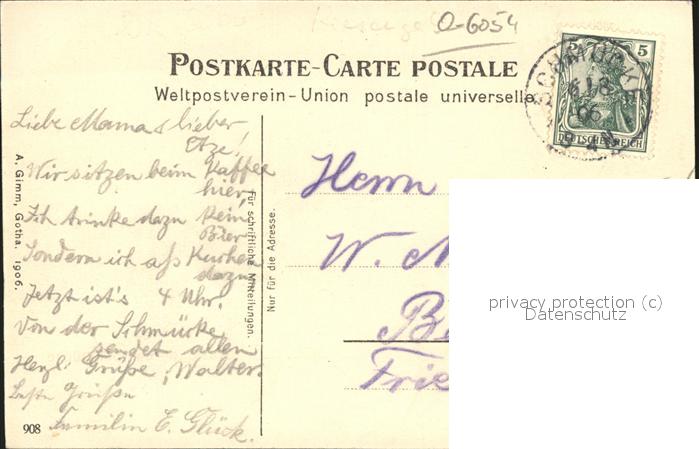 O-6054
POSTKARTE-CARTE POSTALE
Weltpostverein-Union postale universelle
5 5
SCHMÜCKE
6/8
06
DEUTSCHES REICH
Liebe Mama & lieber
Etze,
Wir sitzen beim Kaffee
hier,
Ich trinke dazu kein
Bier
Sondern ich ass Kuchen
dazu
Jetzt ist's 4 Uhr.
Von der Schmücke
sendet allen
Herzl. Grüße, Walter.
Beste Grüße
Familie E. Glück.
A. Gimm, Gotha. 1906.
908
Für schriftliche Mitteilungen.
Nur für die Adresse.
Herrn
W.
privacy protection (c)
Datenschutz